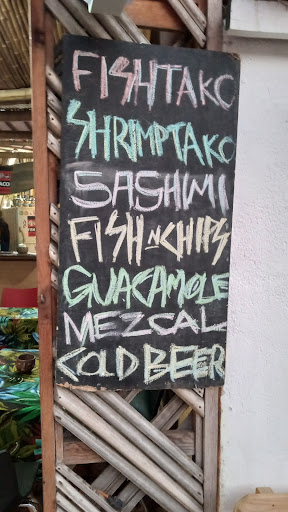 FISHTAKO
SHRIMPTAKO
SASHIMI
FISH N CHIPS
GUACAMOLE
MEZCAL
COLD BEER